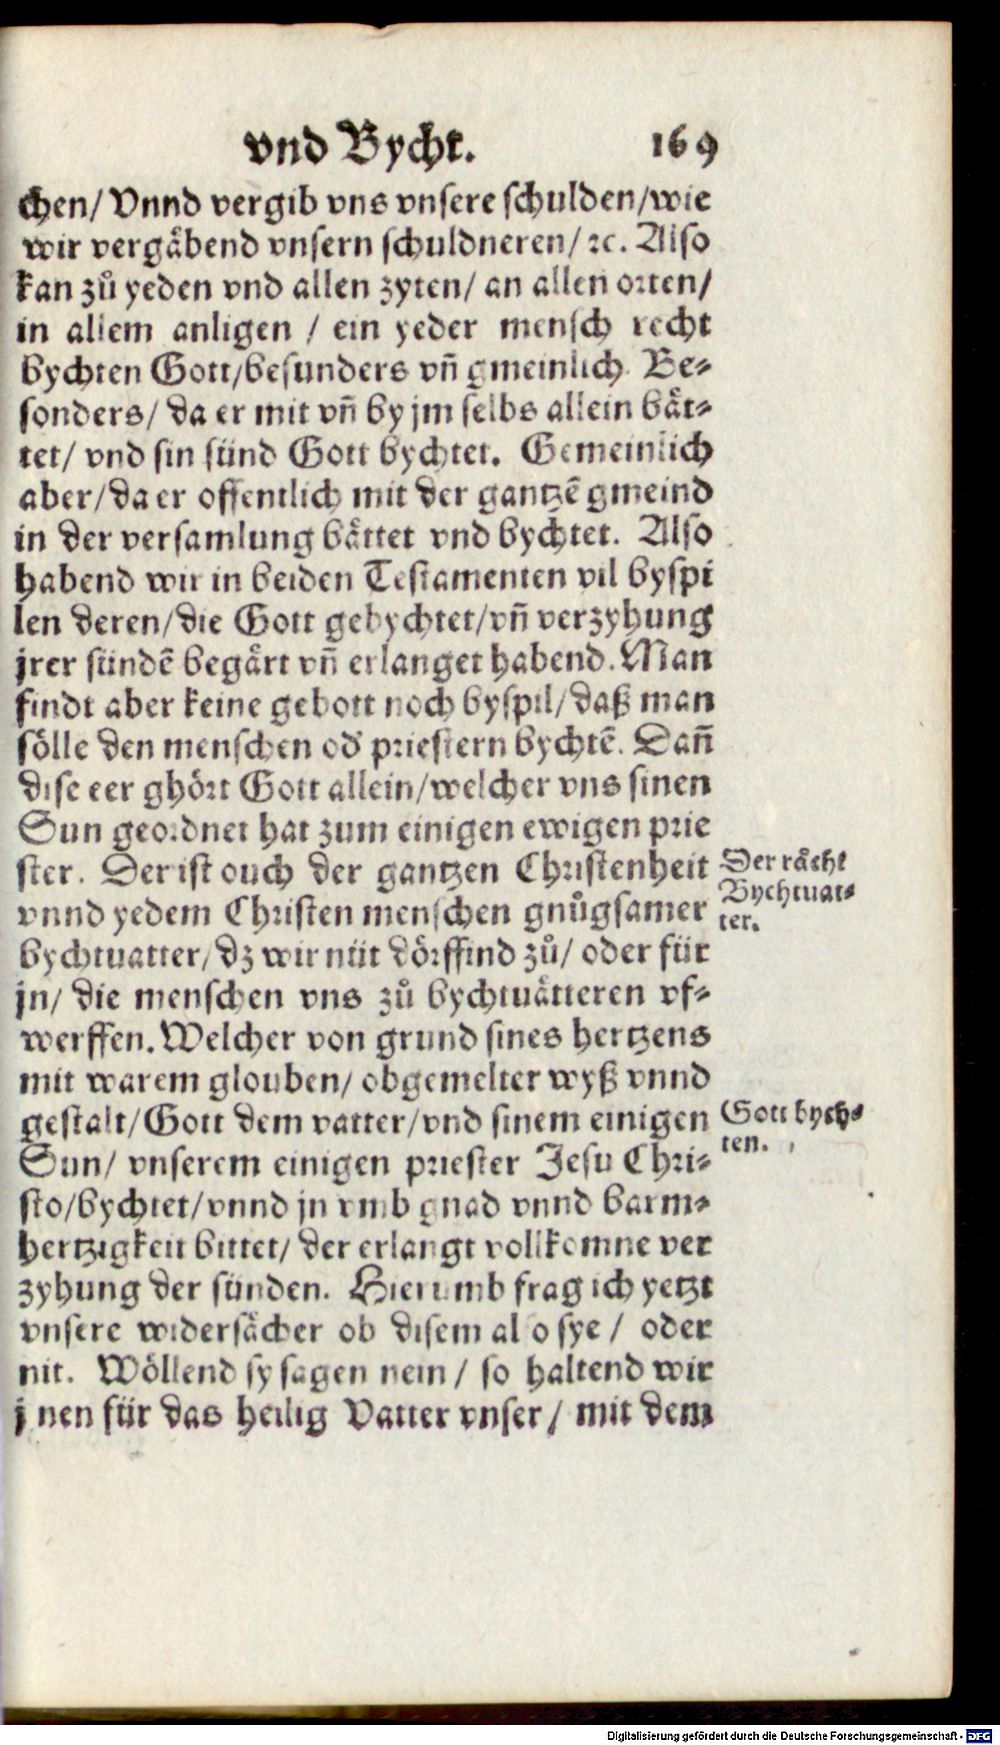 vnd Bycht. 169
chen/ Vnnd vergib vns vnsere schulden/wie
wir vergåbend vnsern schuldneren/ ꝛc. Also
kan zů yeden vnd allen zyten/ an allen orten/
in allem anligen / ein yeder mensch recht
bychten Gott/besunders vn̄ gmeinlich. Be⸗
sonders/ da er mit vn̄ by jm selbs allein båt⸗
tet/ vnd sin sünd Gott bychtet. Gemeinlich
aber/da er offentlich mit der gantzē gmeind
in der versamlung båttet vnd bychtet. Also
habend wir in beiden Testamenten vil byspi
len deren/die Gott gebychtet/vn̄ verzyhung
jrer sündē begårt vn̄ erlanget habend. Man
findt aber keine gebott noch byspil/daß man
sölle den menschen od' priestern bychtē. Dan̄
dise eer ghört Gott allein/welcher vns sinen
Sun geordnet hat zum einigen ewigen prie
ster. Der ist ouch der gantzen Christenheit
vnnd yedem Christen menschen gnůgsamer
bychtuatter/dz wir nüt dörffind zů/ oder für
jn/ die menschen vns zů bychtuåtteren vf⸗
werffen. Welcher von grund sines hertzens
mit warem glouben/ obgemelter wyß vnnd
gestalt/Gott dem vatter/vnd sinem einigen
Sun/ vnserem einigen priester Jesu Chri⸗
sto/bychtet/vnnd jn vmb gnad vnnd barm⸗
hertzigkeit bittet/ der erlangt vollkomne ver
zyhung der sünden. Hierumb frag ich yetzt
vnsere widersåcher ob disem al o sye / oder
nit. Wöllend sy sagen nein / so haltend wir
j nen für das heilig Vatter vnser / mit dem
Der råcht
Bychtuat⸗
ter.
Gott bych⸗
ten.
Digitalisierung gefördert durch die Deutsche Forschungsgemeinschaft - DFG